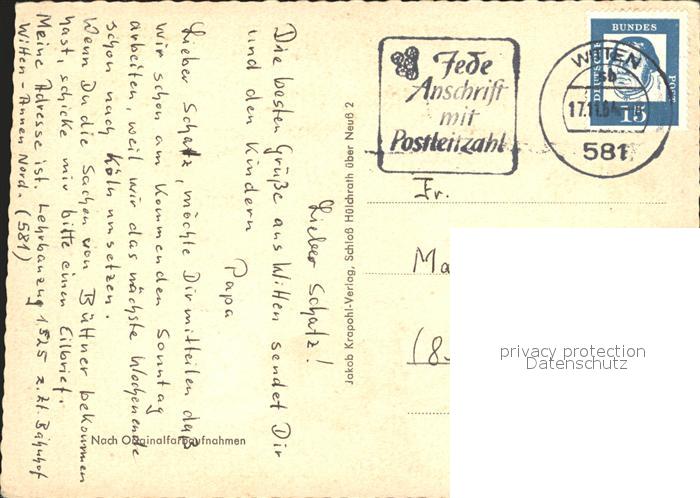 Lieber Schatz!
Die besten Grüße aus Witten sendet Dir
und den Kindern
Papa
Lieber Schatz, möchte Dir mitteilen daß
wir schon am kommenden Sonntag
arbeiten, weil wir das nächste Wochenende
schon nach Köln umsetzen.
Wenn Du die Sachen von Büttner bekommen
hast, schicke mir bitte einen Eilbrief.
Meine Adresse ist. Lehrbauzug 1525 z.Zt. Bahnhof
Witten-Annen Nord. (581)
Jakob Krapohl-Verlag, Schloß Hülchrath über Neuß 2
Nach Originalfarbaufnahmen
Jede
Anschrift
mit
Postleitzahl
WITTEN
sb
17.11.64
581
DEUTSCHE BUNDES POST
15
Fr.
Ma
(8
privacy protection
Datenschutz